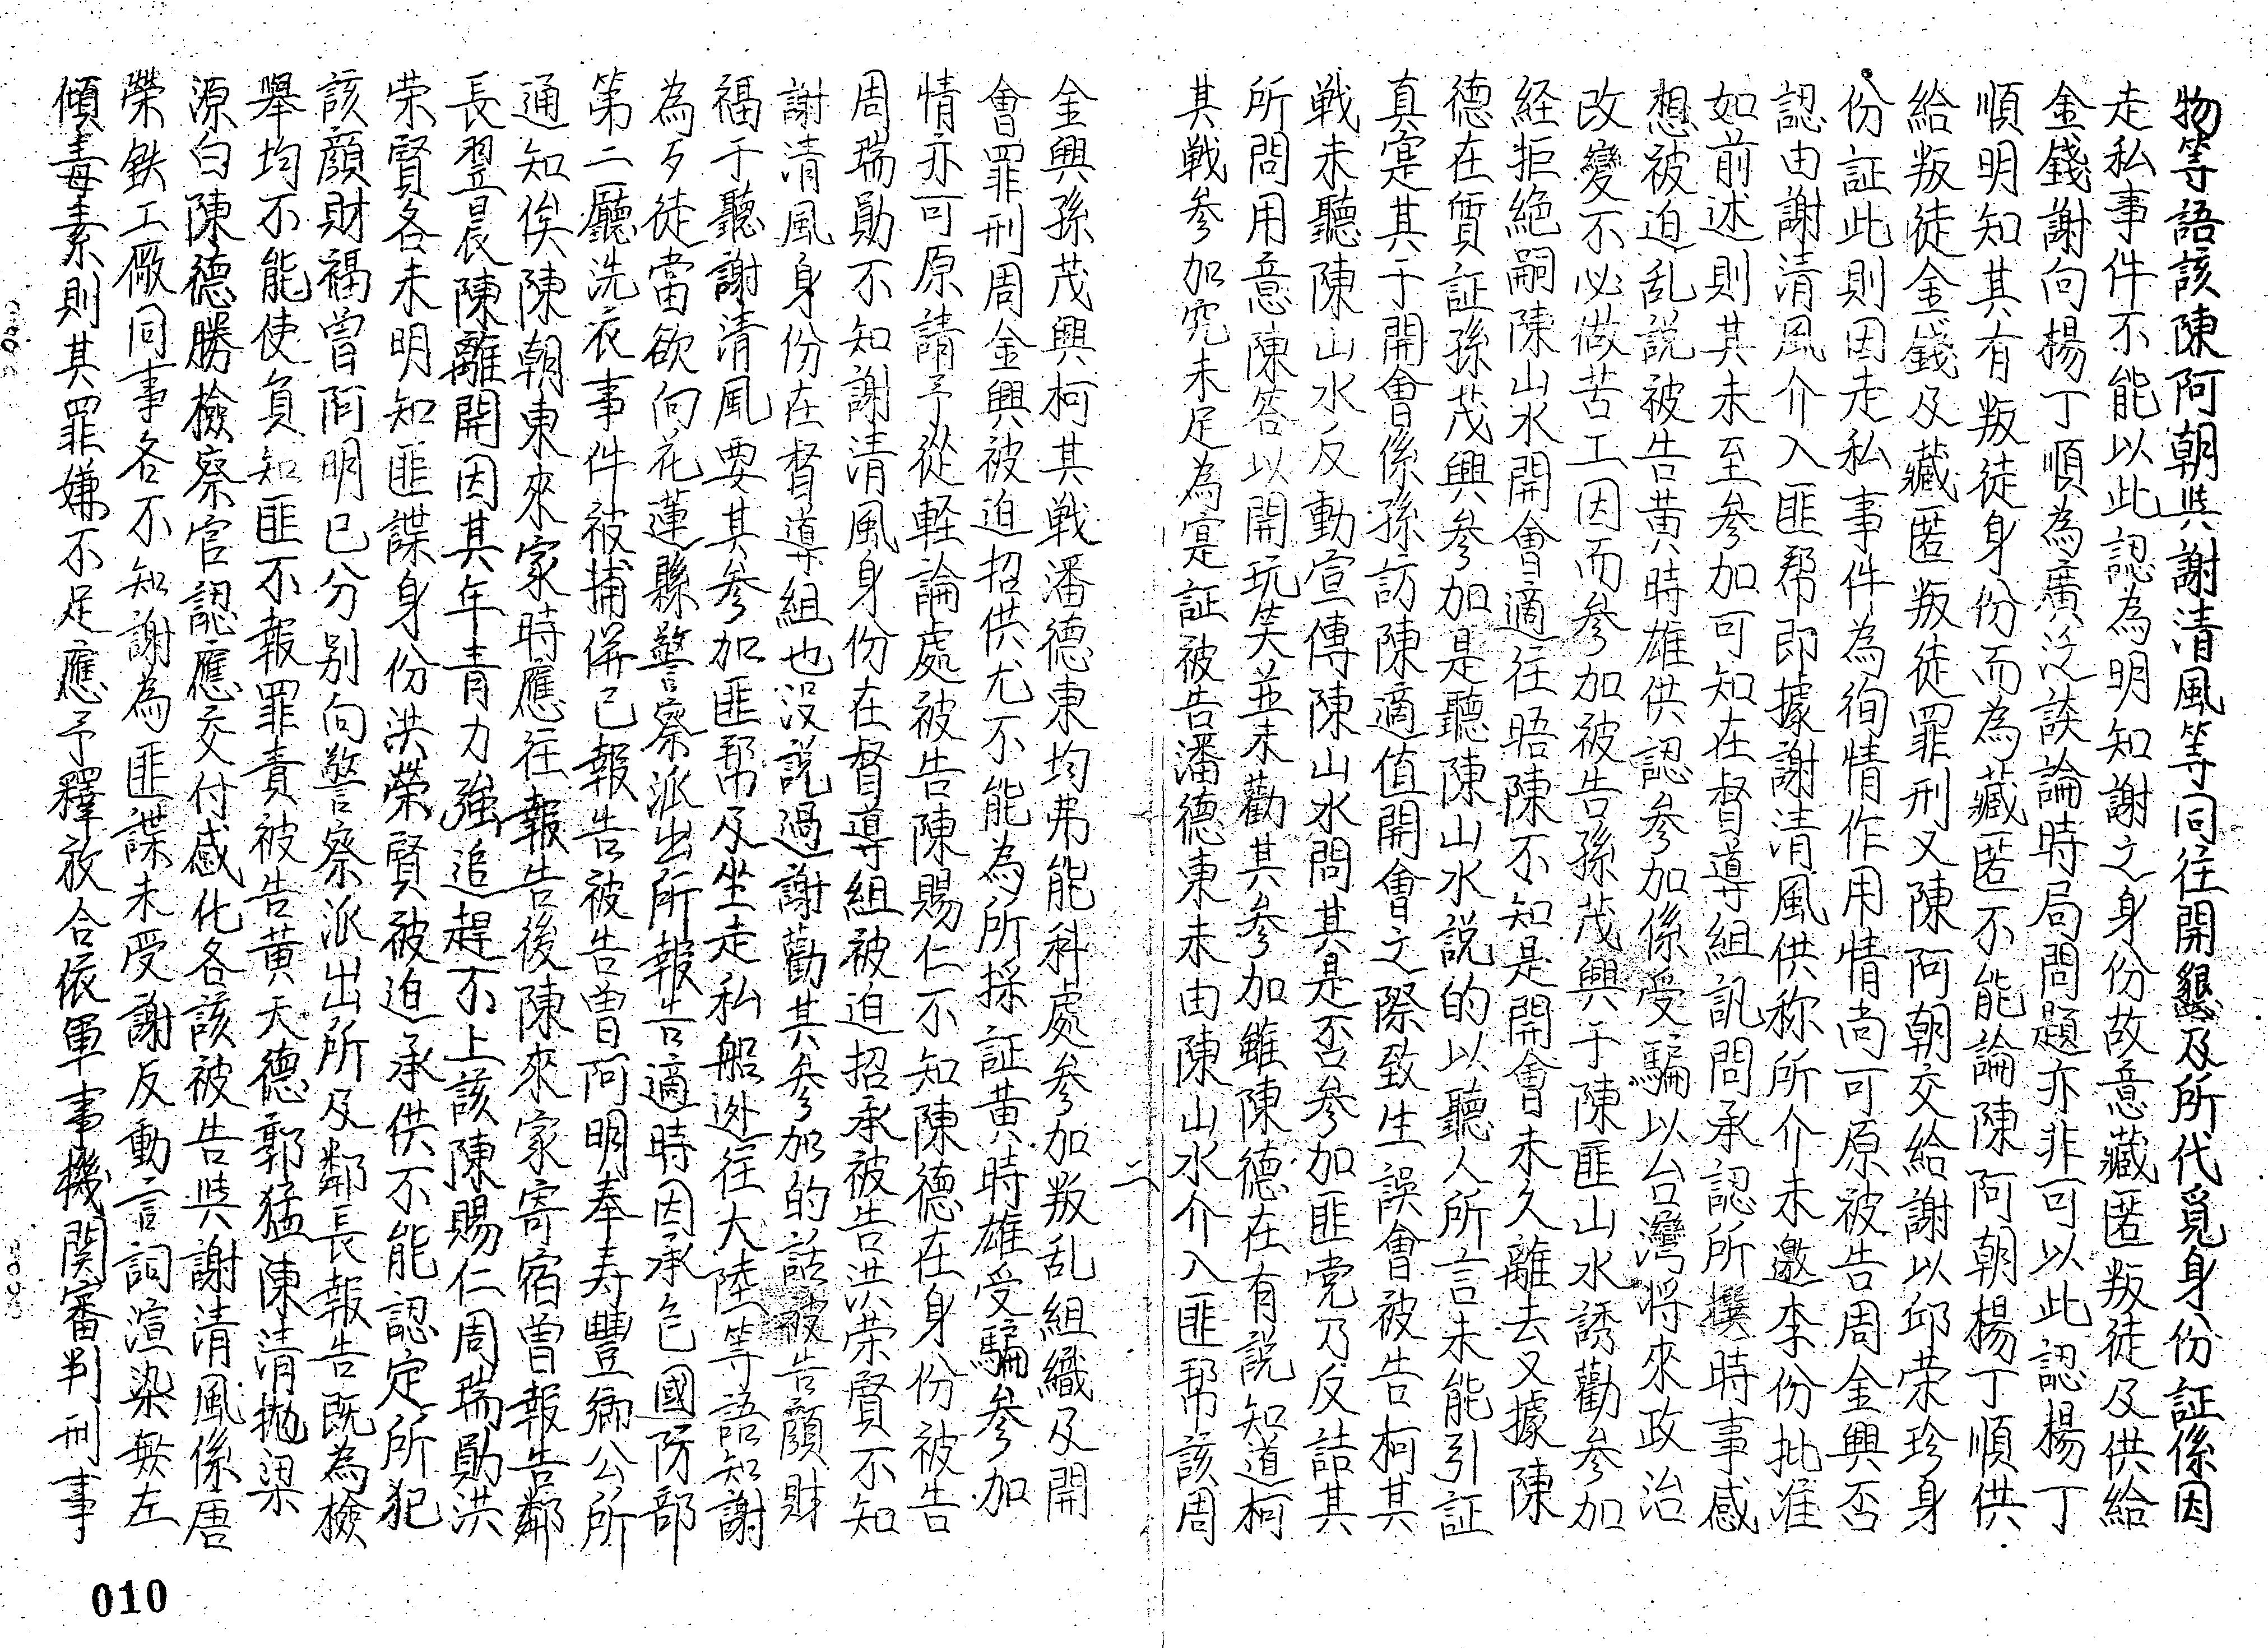 物等語該陳阿朝與謝清風等同往開懇及所代覓身份証係因
走私事件不能以此認為明知謝之身份故意藏匿叛徒及供給
金錢謝向楊丁順為廣泛談論時局問題亦非可以此認楊丁
順明知其有叛徒身份而為藏匿不能論陳阿朝楊丁順供
給叛徒金錢及藏匿叛徒罪刑又陳阿朝交給謝以邱荣珍身
份証此則因走私事件為徇情作用情尚可原被告周金興否
認由謝清風介入匪帮即據謝清風供称所介未邀李份批准
如前述則其未至參加可知在督導組訊問承認所撰時事感
想被迫乱説被告黃時雄供認參加係受騙以台灣将來政治
改變不必做苦工因而參加被告孫茂興于陳匪山水誘勸參加
経拒絶嗣陳山水開會適往晤陳不知是開會未久離去又據陳
德在質証孫茂興參加是聽陳山水説的以聽人所言未能引証
真寔其于開會係孫訪陳適值開會之際致生誤會被告柯其
戦未聽陳山水反動宣傳陳山水問其是否參加匪党乃反詰其
所問用意陳答以開玩笑並未勸其參加雖陳德在有説知道柯
其戦參加究未足為寔証被告潘德東未由陳山水介入匪帮該周
二
金興孫茂興柯其戦潘德東均弗能科處參加叛乱組織及開
會罪刑周金興被迫招供尤不能為所採証黃時雄受騙參加
情亦可原請予從軽論處被告陳賜仁不知陳德在身份被告
周瑞勛不知謝清風身份在督導組被迫招承被告洪荣賢不知
謝清風身份在督導組也沒説過謝勸其參加的話被告顏財
福于聽謝清風要其參加匪帮及坐走私船逃往大陸等語知謝
為歹徒當欲向花蓮縣警察派出所報告適時因承包國防部
第二廳洗衣事件被捕併已報告被告曾阿明奉寿豐鄉公所
通知俟陳朝東來家時應往報告後陳來家寄宿曾報告鄰
長翌晨陳離開因其年青力強追趕不上該陳賜仁周瑞勛洪
荣賢各未明知匪諜身份洪榮賢被迫承供不能認定所犯
該顏財福曾阿明已分別向警察派出所及鄰長報告既為檢
舉均不能使負知匪不報罪責被告黃天德郭猛陳清拋梁
源白陳德勝檢察官認應交付感化各該被告與謝清風係唐
榮鉄工廠同事各不知謝為匪諜未受謝反動言詞渲染無左
傾毒素則其罪嫌不足應予釋放合依軍事機関審判刑事
010